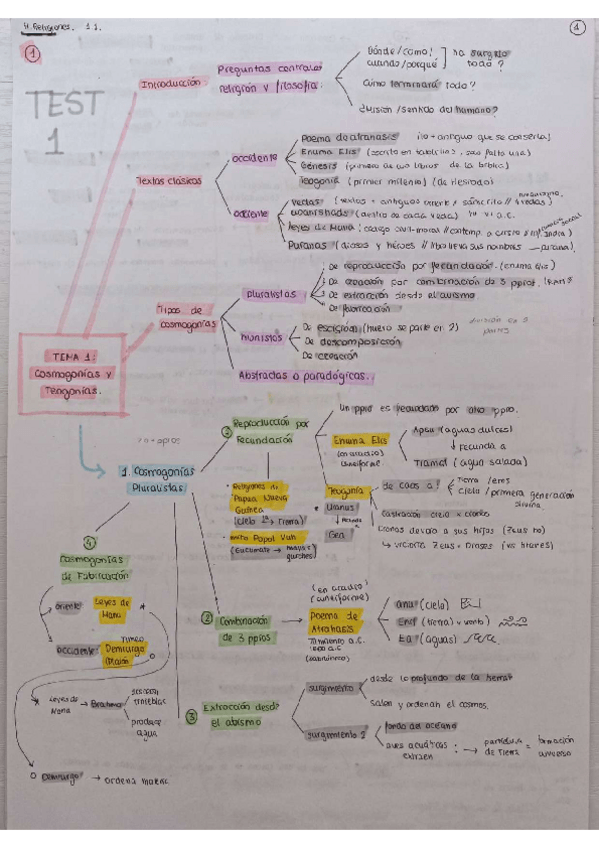 H. Religiones. 1.1.
1
1
TEST
1
Introducción
Preguntas
religión y filosofía
Dónde/como?
cuando/porqué?
ha surgido
todo?
Cómo terminará todo?
¿Misión/sentido del humano?
Textos clásicos
occidente
Poema de atrahasis (lo + antiguo que se conserva)
Enuma Elis (escrito en tablillas,
Génesis (primero de los libros de la biblia)
Teogonía (primer milenio) (de Hesiodo)
oriente
vedas (textos + antiguos oriente / sánscrito // 4 vedas)
upanishads (dentro de cada veda)
Leyes de Manu:
Puranas (dioses y héroes //
Tipos de
cosmogonías
pluralistas
De reproducción por fecundación. (enuma elis)
De creación por combinación de 3 ppios.
De extracción desde el abismo
De fabricación
monistas
De escisión (huevo se parte en 2)
De descomposición
De creación
Abstractas o paradógicas.
TEMA 1:
Cosmogonías y
Teogonías.
1. Cosmogonías
Pluralistas
1
Reproducción por
Fecundación
Un ppio es fecundado por otro ppio.
Enuma Elis
(en acadio)
cuneiforme
Apsu (aguas dulces)
fecunda a
Tiamat (agua salada)
Religiones de
Papua Nueva
Guinea
(Cielo → Tierra)
mito Popol Vuh
Teogonía
Uranus
Gea
de caos a:
Tierra /eros
Cielo /primera generación
divina
Castración cielo x cronos
Cronos devora a sus hijos (Zeus no)
↳ victoria Zeus + Dioses (vs titanes)
4
Cosmogonías
de Fabricación
oriente
Leyes de
Manu
occidente
Timeo
Demiurgo
(Platón
Leyes de
Manu
→ Brahma
disipan
tinieblas
produce
agua
Demiurgo → ordena materia
2
Combinación
de 3 ppios
(en acadio)
(cuneiforme)
Poema de
Atrahasis
anu (cielo)
Enlil (tierra) y viento
Ea (aguas)
3
Extracción desde
el abismo
surgimiento
desde lo profundo de la tierra
Salen y ordenan el cosmos.
surgimiento 2
fondo del océano
aves acuáticas
extraen
: → partículas
de tierra
= formación
universo